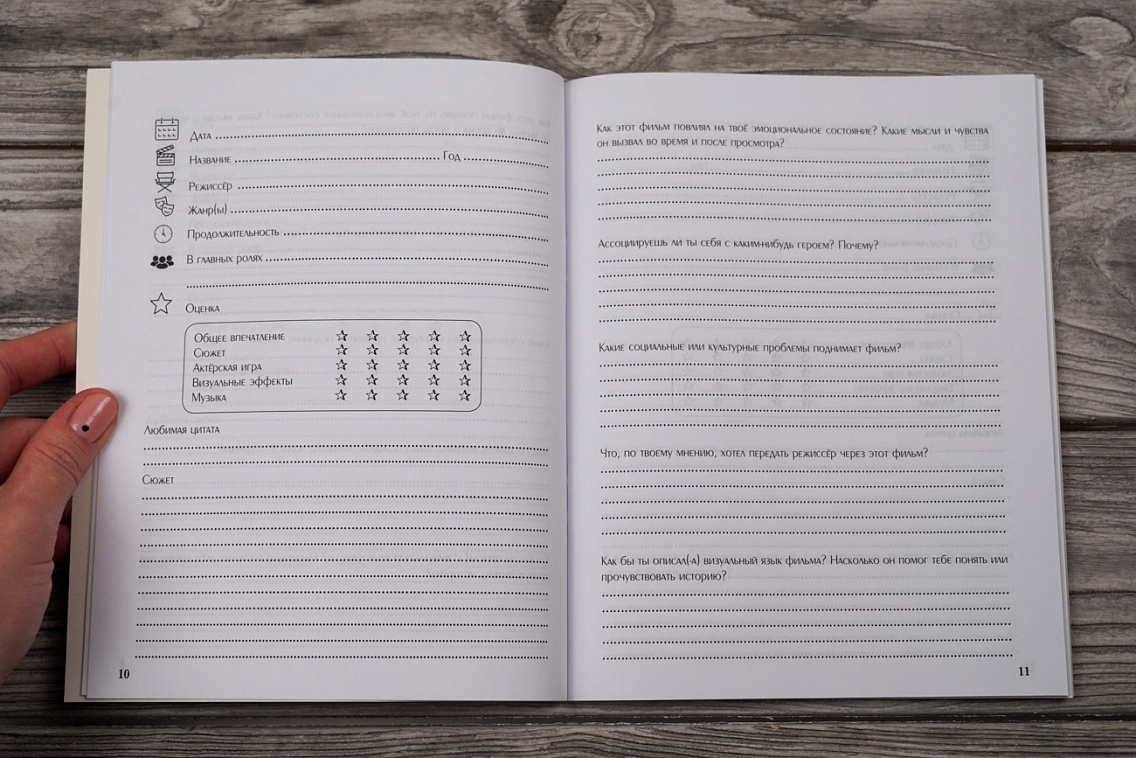 Дата
Название Год
Режиссёр
Жанр(ы)
Продолжительность
В главных ролях
Оценка
Общее впечатление
Сюжет
Актёрская игра
Визуальные эффекты
Музыка
Любимая цитата
Сюжет
10
Как этот фильм повлиял на твоё эмоциональное состояние? Какие мысли и чувства
он вызвал во время и после просмотра?
Ассоциируешь ли ты себя с каким-нибудь героем? Почему?
Какие социальные или культурные проблемы поднимает фильм?
Что, по твоему мнению, хотел передать режиссёр через этот фильм?
Как бы ты описал(-а) визуальный язык фильма? Насколько он помог тебе понять или
прочувствовать историю?
11